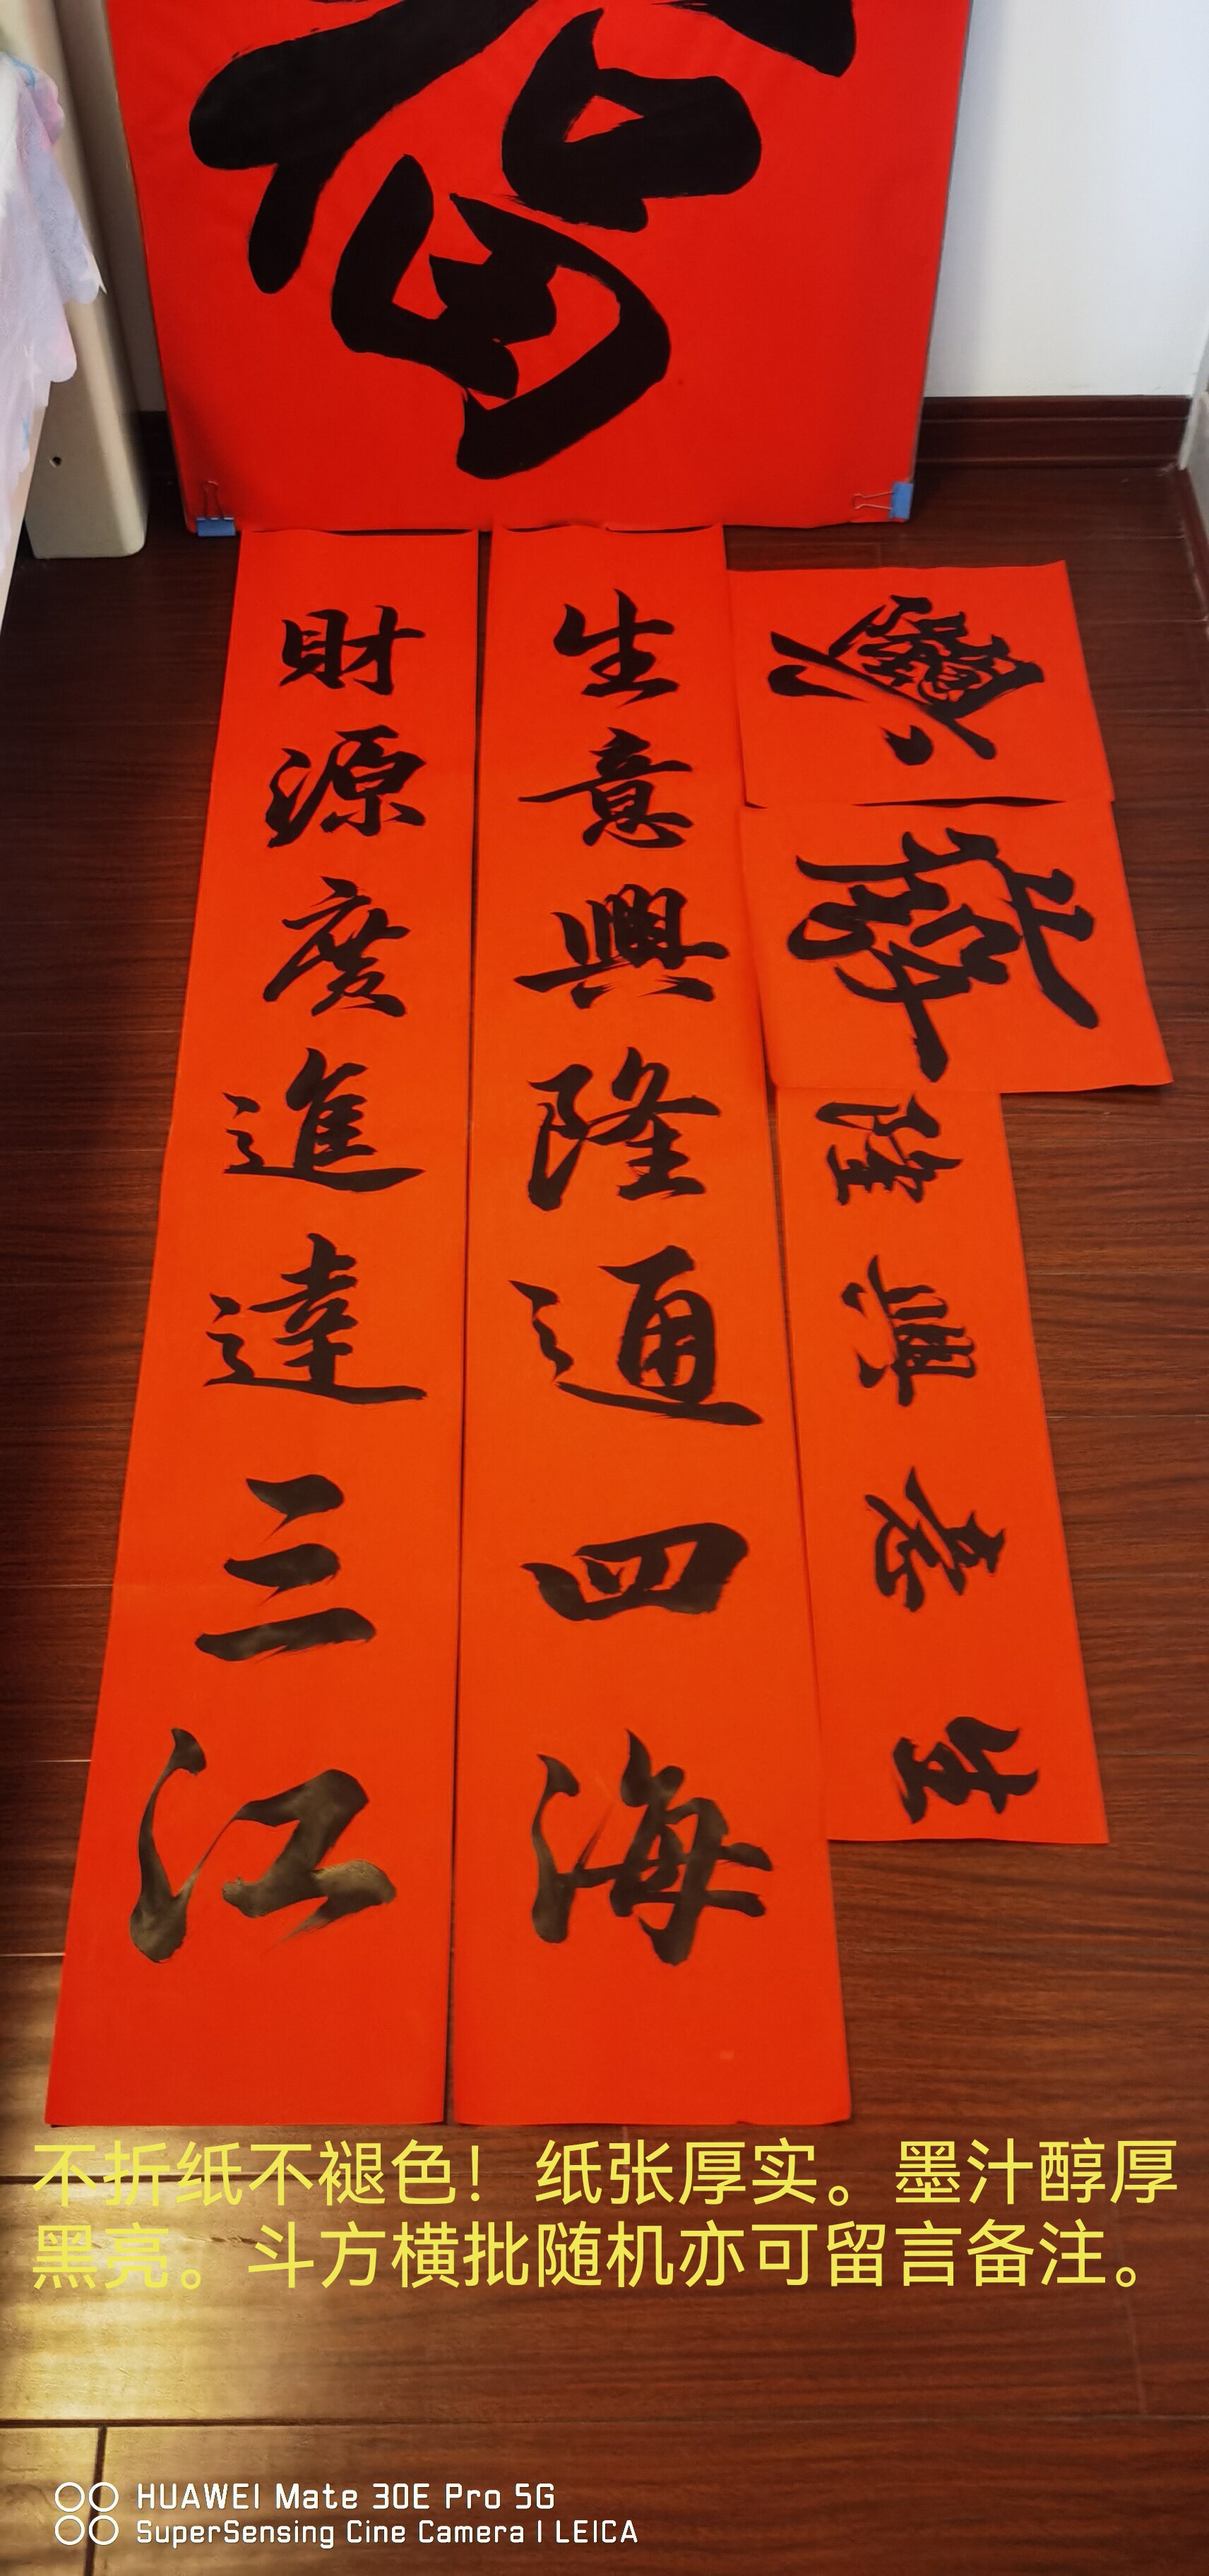 生意興隆通四海
財源廣進達三江
生意興隆
發
不折纸不褪色！纸张厚实。墨汁醇厚
黑亮。斗方横批随机亦可留言备注。
HUAWEI Mate 30E Pro 5G
SuperSensing Cine Camera | LEICA